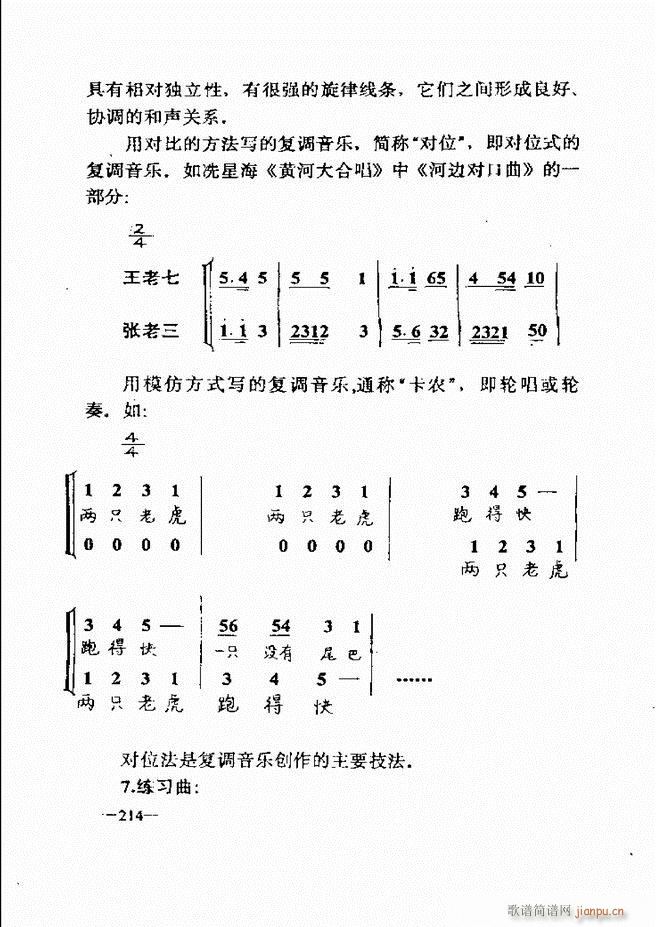 具有相对独立性，有很强的旋律线条，它们之间形成良好、
协调的和声关系。
用对比的方法写的复调音乐，简称“对位”，即对位式的
复调音乐。如冼星海《黄河大合唱》中《河边对口曲》的一
部分：
2/4
王老七 5·4 5 | 5 5 1 | 1·1 65 | 4 54 10
张老三 1·1 3 | 2312 3 | 5·6 32 | 2321 50
用模仿方式写的复调音乐，通称“卡农”，即轮唱或轮
奏。如：
4/4
1 2 3 1 | 1 2 3 1 | 3 4 5 — |
两只老虎 两只老虎 跑得快
0 0 0 0 | 0 0 0 0 | 1 2 3 1
两只老虎
3 4 5 — | 56 54 3 1 |
跑得快 一只 没有 尾巴
1 2 3 1 | 3 4 5 — | ……
两只老虎 跑得快
对位法是复调音乐创作的主要技法。
7.练习曲：
—214—
歌谱简谱网 jianpu.cn